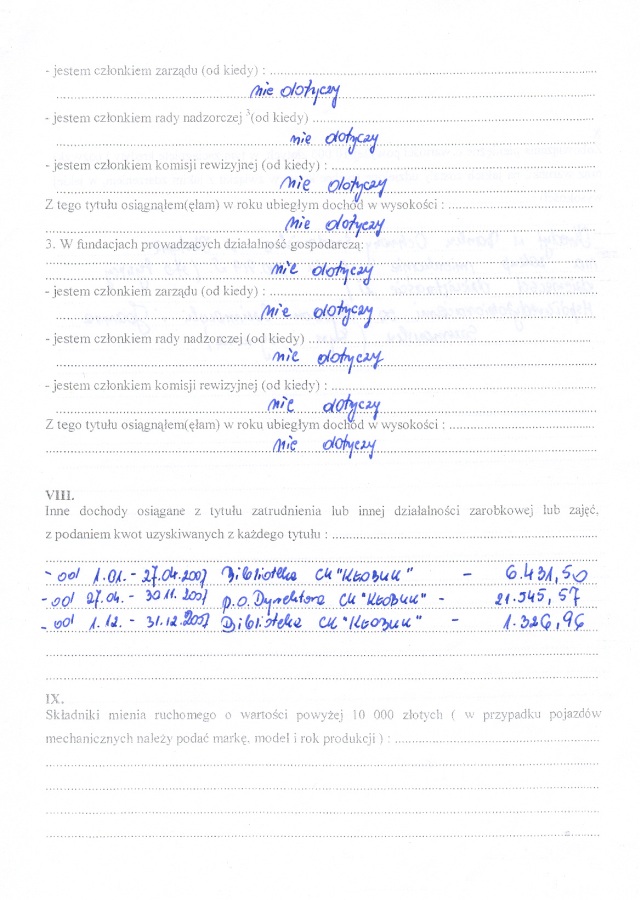 - jestem członkiem zarządu (od kiedy) :
nie dotyczy
- jestem członkiem rady nadzorczej ³(od kiedy)
nie dotyczy
- jestem członkiem komisji rewizyjnej (od kiedy) :
nie dotyczy
Z tego tytułu osiągnąłem(ęłam) w roku ubiegłym dochód w wysokości :
nie dotyczy
3. W fundacjach prowadzących działalność gospodarczą:
nie dotyczy
- jestem członkiem zarządu (od kiedy) :
nie dotyczy
- jestem członkiem rady nadzorczej (od kiedy)
nie dotyczy
- jestem członkiem komisji rewizyjnej (od kiedy) :
nie dotyczy
Z tego tytułu osiągnąłem(ęłam) w roku ubiegłym dochód w wysokości :
nie dotyczy
VIII.
Inne dochody osiągane z tytułu zatrudnienia lub innej działalności zarobkowej lub zajęć,
z podaniem kwot uzyskiwanych z każdego tytułu :
- od 1.01. - 27.04.2007 Biblioteka CK "KŁOBUK" - 6.431,50
- od 27.04. - 30.11.2007 p.o. Dyrektora CK "KŁOBUK" - 21.545,57
- od 1.12. - 31.12.2007 Biblioteka CK "KŁOBUK" - 1.326,96
IX.
Składniki mienia ruchomego o wartości powyżej 10 000 złotych ( w przypadku pojazdów
mechanicznych należy podać markę, model i rok produkcji ) :